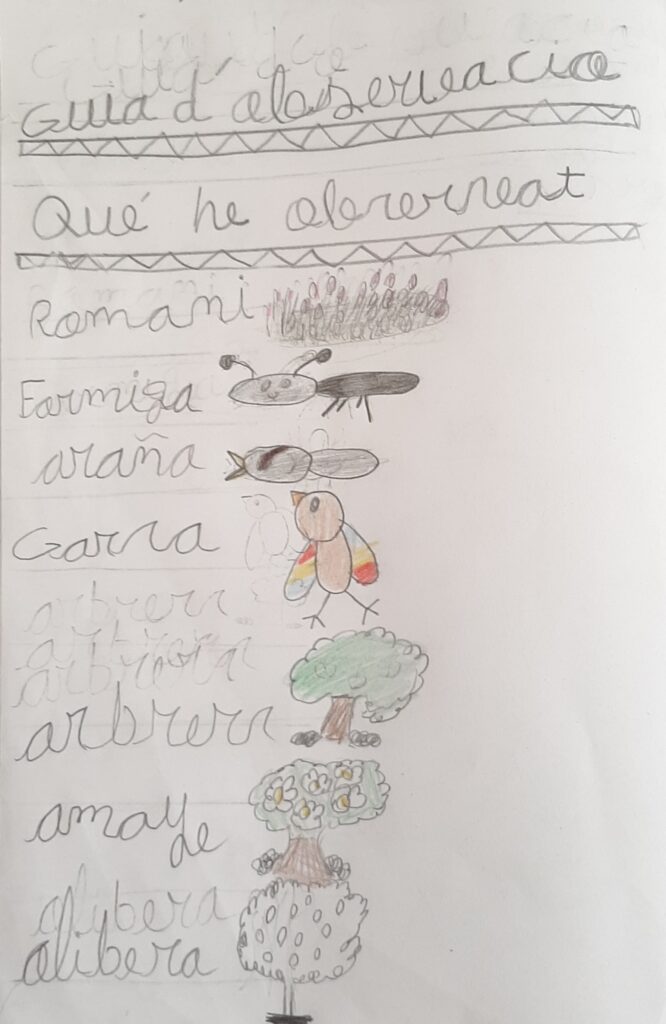 Guia d' observacio
Qué he observeat
Romani
Formiga
araña
Garra
arbrern
arbrern
amay
de
alybera
alibera